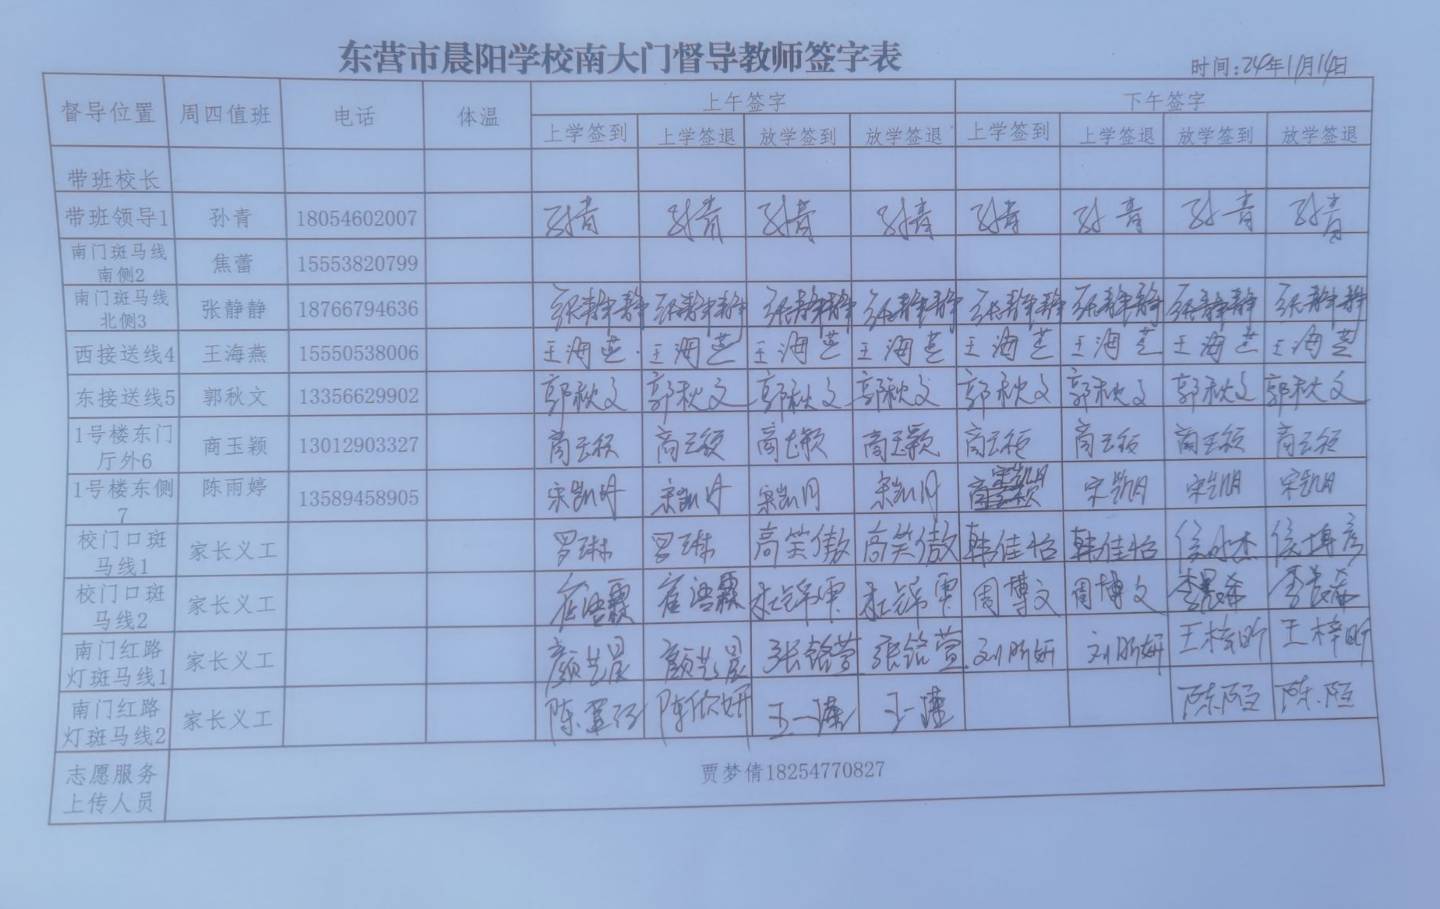 东营市晨阳学校南大门督导教师签字表
时间:24年11月14日
督导位置 周四值班 电话 体温 上午签字 下午签字
上学签到 上学签退 放学签到 放学签退 上学签到 上学签退 放学签到 放学签退
带班校长
带班领导1 孙青 18054602007 孙青 孙青 孙青 孙青 孙青 孙青 孙青 孙青
南门斑马线
南侧2 焦蕾 15553820799
南门斑马线
北侧3 张静静 18766794636 张静静 张静静 张静静 张静静 张静静 张静静 张静静 张静静
西接送线4 王海燕 15550538006 王海芝 王海芝 王海芝 王海芝 王海芝 王海芝 王海芝 王海芝
东接送线5 郭秋文 13356629902 郭秋文 郭秋文 郭秋文 郭秋文 郭秋文 郭秋文 郭秋文 郭秋文
1号楼东门
厅外6 商玉颖 13012903327 商玉颖 商玉颖 商玉颖 商玉颖 商玉颖 商玉颖 商玉颖 商玉颖
1号楼东侧
7 陈雨婷 13589458905 宋凯月 宋凯月 宋凯月 宋凯月 宋凯月 宋凯月 宋凯月
校门口斑
马线1 家长义工 罗琳 罗琳 高笑傲 高笑傲 韩佳怡 韩佳怡
校门口斑
马线2 家长义工 崔语霖 崔语霖 周博文 周博文
南门红路
灯斑马线1 家长义工 颜艺晨 颜艺晨 张铭萱 张铭萱 刘昕妍 刘昕妍 王梓昕 王梓昕
南门红路
灯斑马线2 家长义工 陈欣妍 王一潼 王一潼 陈熙 陈熙
志愿服务
上传人员 贾梦倩18254770827